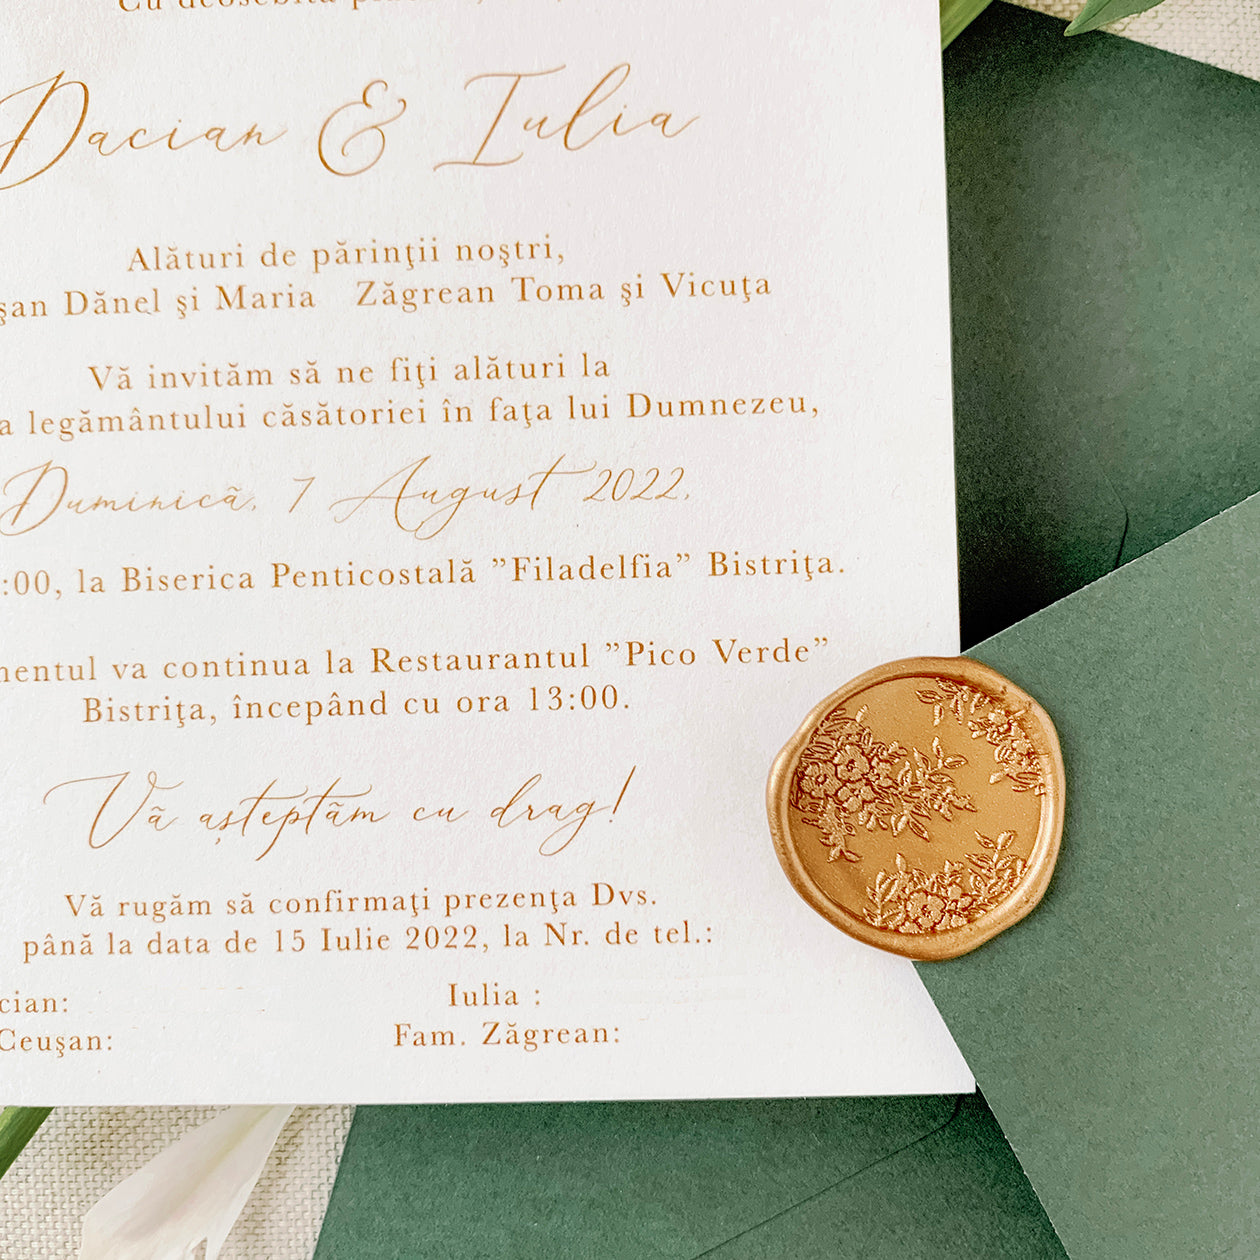 Cu deosebită
Dacian & Iulia
Alături de părinţii noştri,
şan Dănel şi Maria Zăgrean Toma şi Vicuţa
Vă invităm să ne fiţi alături la
a legământului căsătoriei în faţa lui Dumnezeu,
Duminică, 7 August 2022,
:00, la Biserica Penticostală ”Filadelfia” Bistriţa.
mentul va continua la Restaurantul ”Pico Verde”
Bistriţa, începând cu ora 13:00.
Vă așteptăm cu drag!
Vă rugăm să confirmaţi prezenţa Dvs.
până la data de 15 Iulie 2022, la Nr. de tel.:
cian: Iulia :
Ceuşan: Fam. Zăgrean: